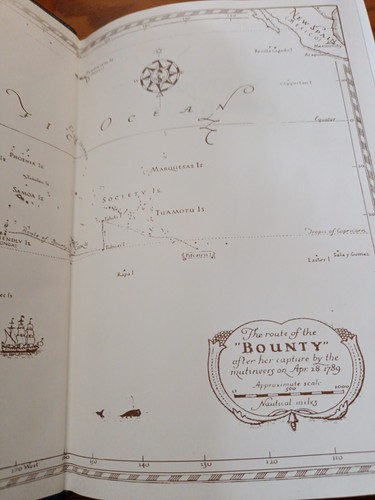 NEW SPAIN
FIC OCEAN
Equator
PHOENIX IS.
MARQUESAS IS.
SOCIETY IS.
SAMOA IS.
TUAMOTU IS.
Tropic of Capricorn
Tubuai I.
PITCAIRN I.
Easter I.
Sala y Gomez
Rapa I.
The route of the
"BOUNTY"
after her capture by the
mutineers on Apr. 28. 1789.
Approximate scale
0 500 1000
Nautical miles
170 West
130
120
110